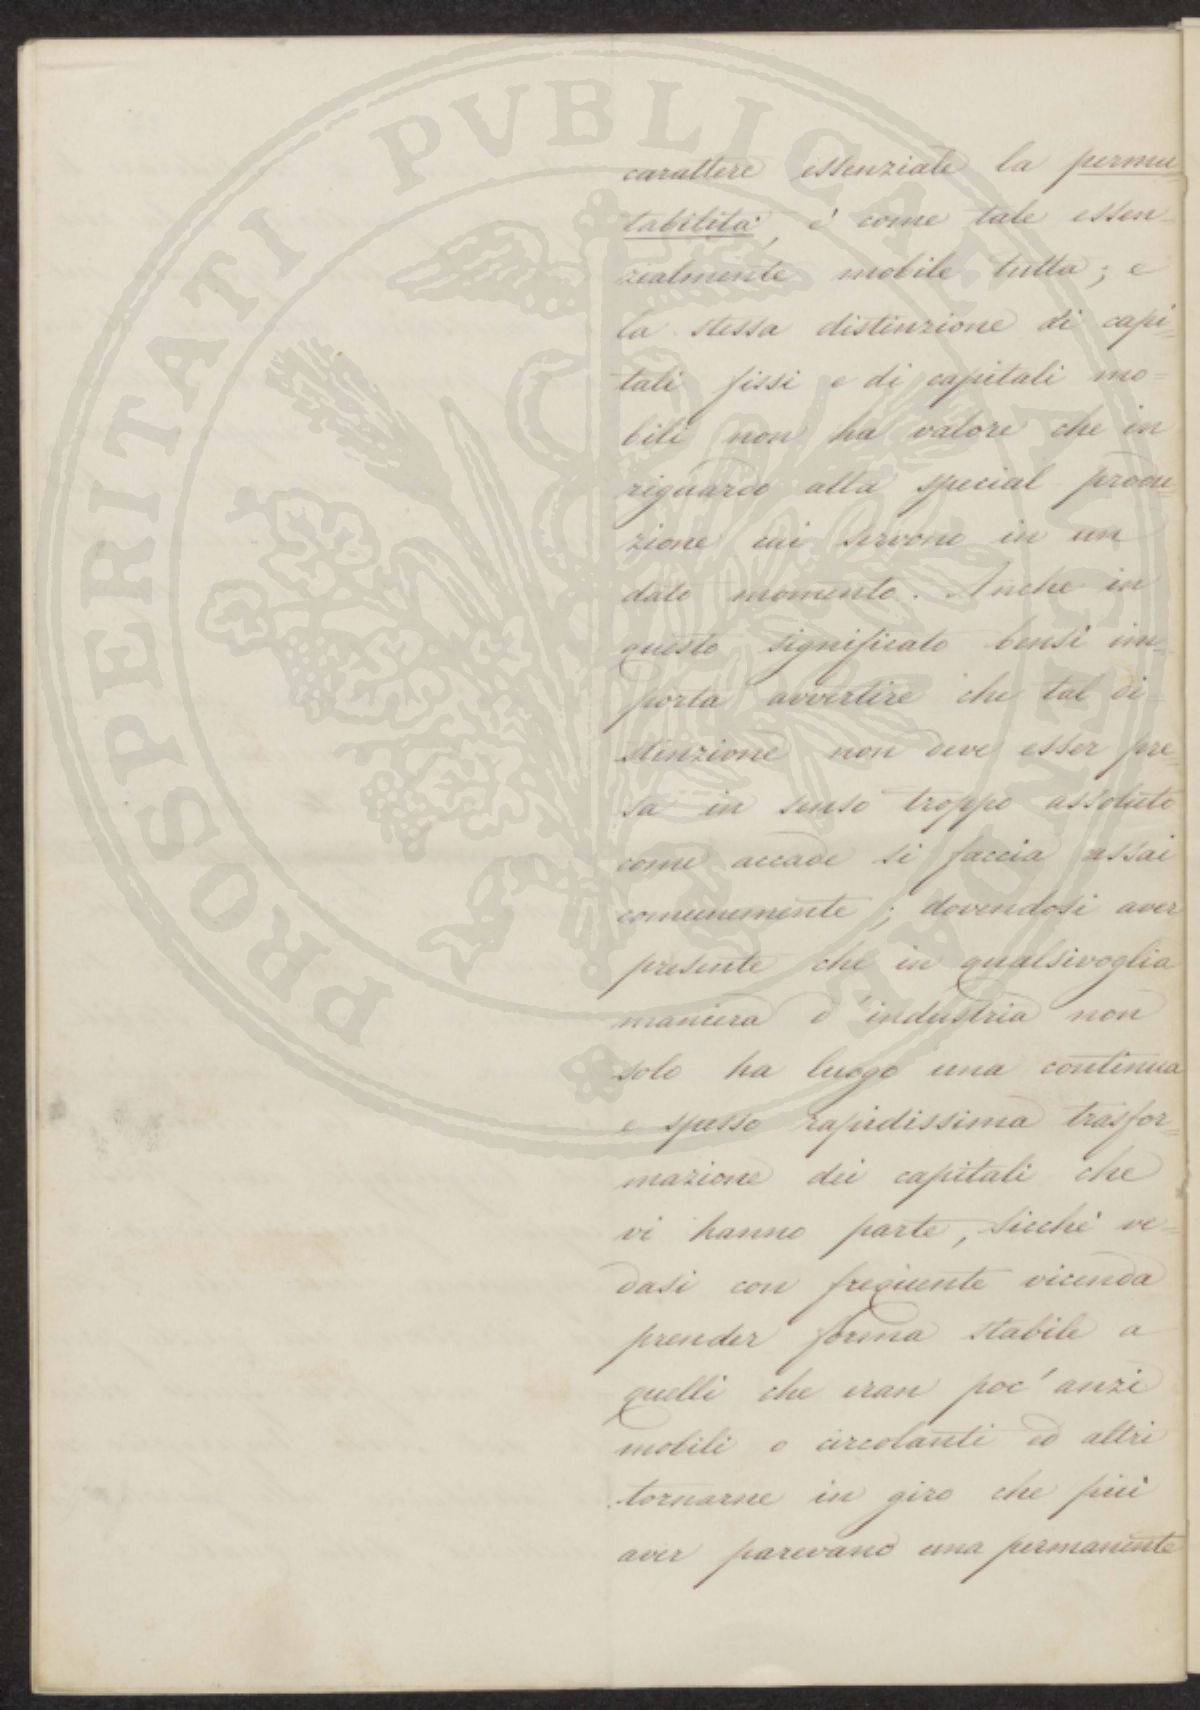 carattere essenziale la permu
tabilità, è come tale essen-
zialmente mobile tutta; e
la stessa distinzione di capi-
tali fissi e di capitali mo=
bili non ha valore che in
riguardo alla special produ-
zione cui servono in un
dato momento. Anche in
questo significato bensì im-
porta avvertire che tal di-
stinzione non deve esser pre
sa in senso troppo assoluto
come accade si faccia assai
comunemente; dovendosi aver
presente che in qualsivoglia
maniera d'industria non
solo ha luogo una continua
e spesso rapidissima trasfor-
mazione dei capitali che
vi hanno parte, sicchè ve-
dasi con frequente vicenda
prender forma stabile a
quelli che eran poc'anzi
mobili o circolanti ed altri
tornarne in giro che più
aver parevano una permanente
PROSPERITATI PUBLICAE AUGENDAE